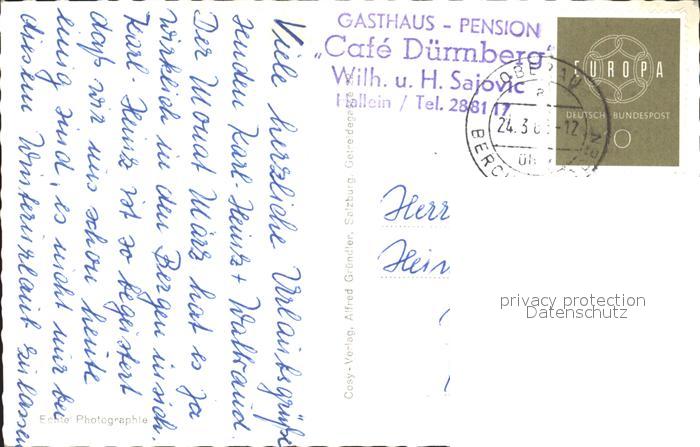 GASTHAUS - PENSION
„Café Dürrnberg"
Wilh. u. H. Sajovic
Hallein / Tel. 2881 17
EUROPA
DEUTSCHE BUNDESPOST
OBERAU
a
24.3.6 -12
BERCH
Viele herzliche Urlaubsgrüße
senden Karl-Heinz + Waltraud.
Der Monat März hat es ja
wirklich in den Bergen in sich.
Karl-Heinz ist so begeistert
daß wir uns schon heute
einig sind, es nicht nur bei
diesem Winterurlaub zu lassen
Cosy-Verlag, Alfred Gründler, Salzburg, Getreidegasse
Herr
Hein
privacy protection
Datenschutz
Echte Photographie